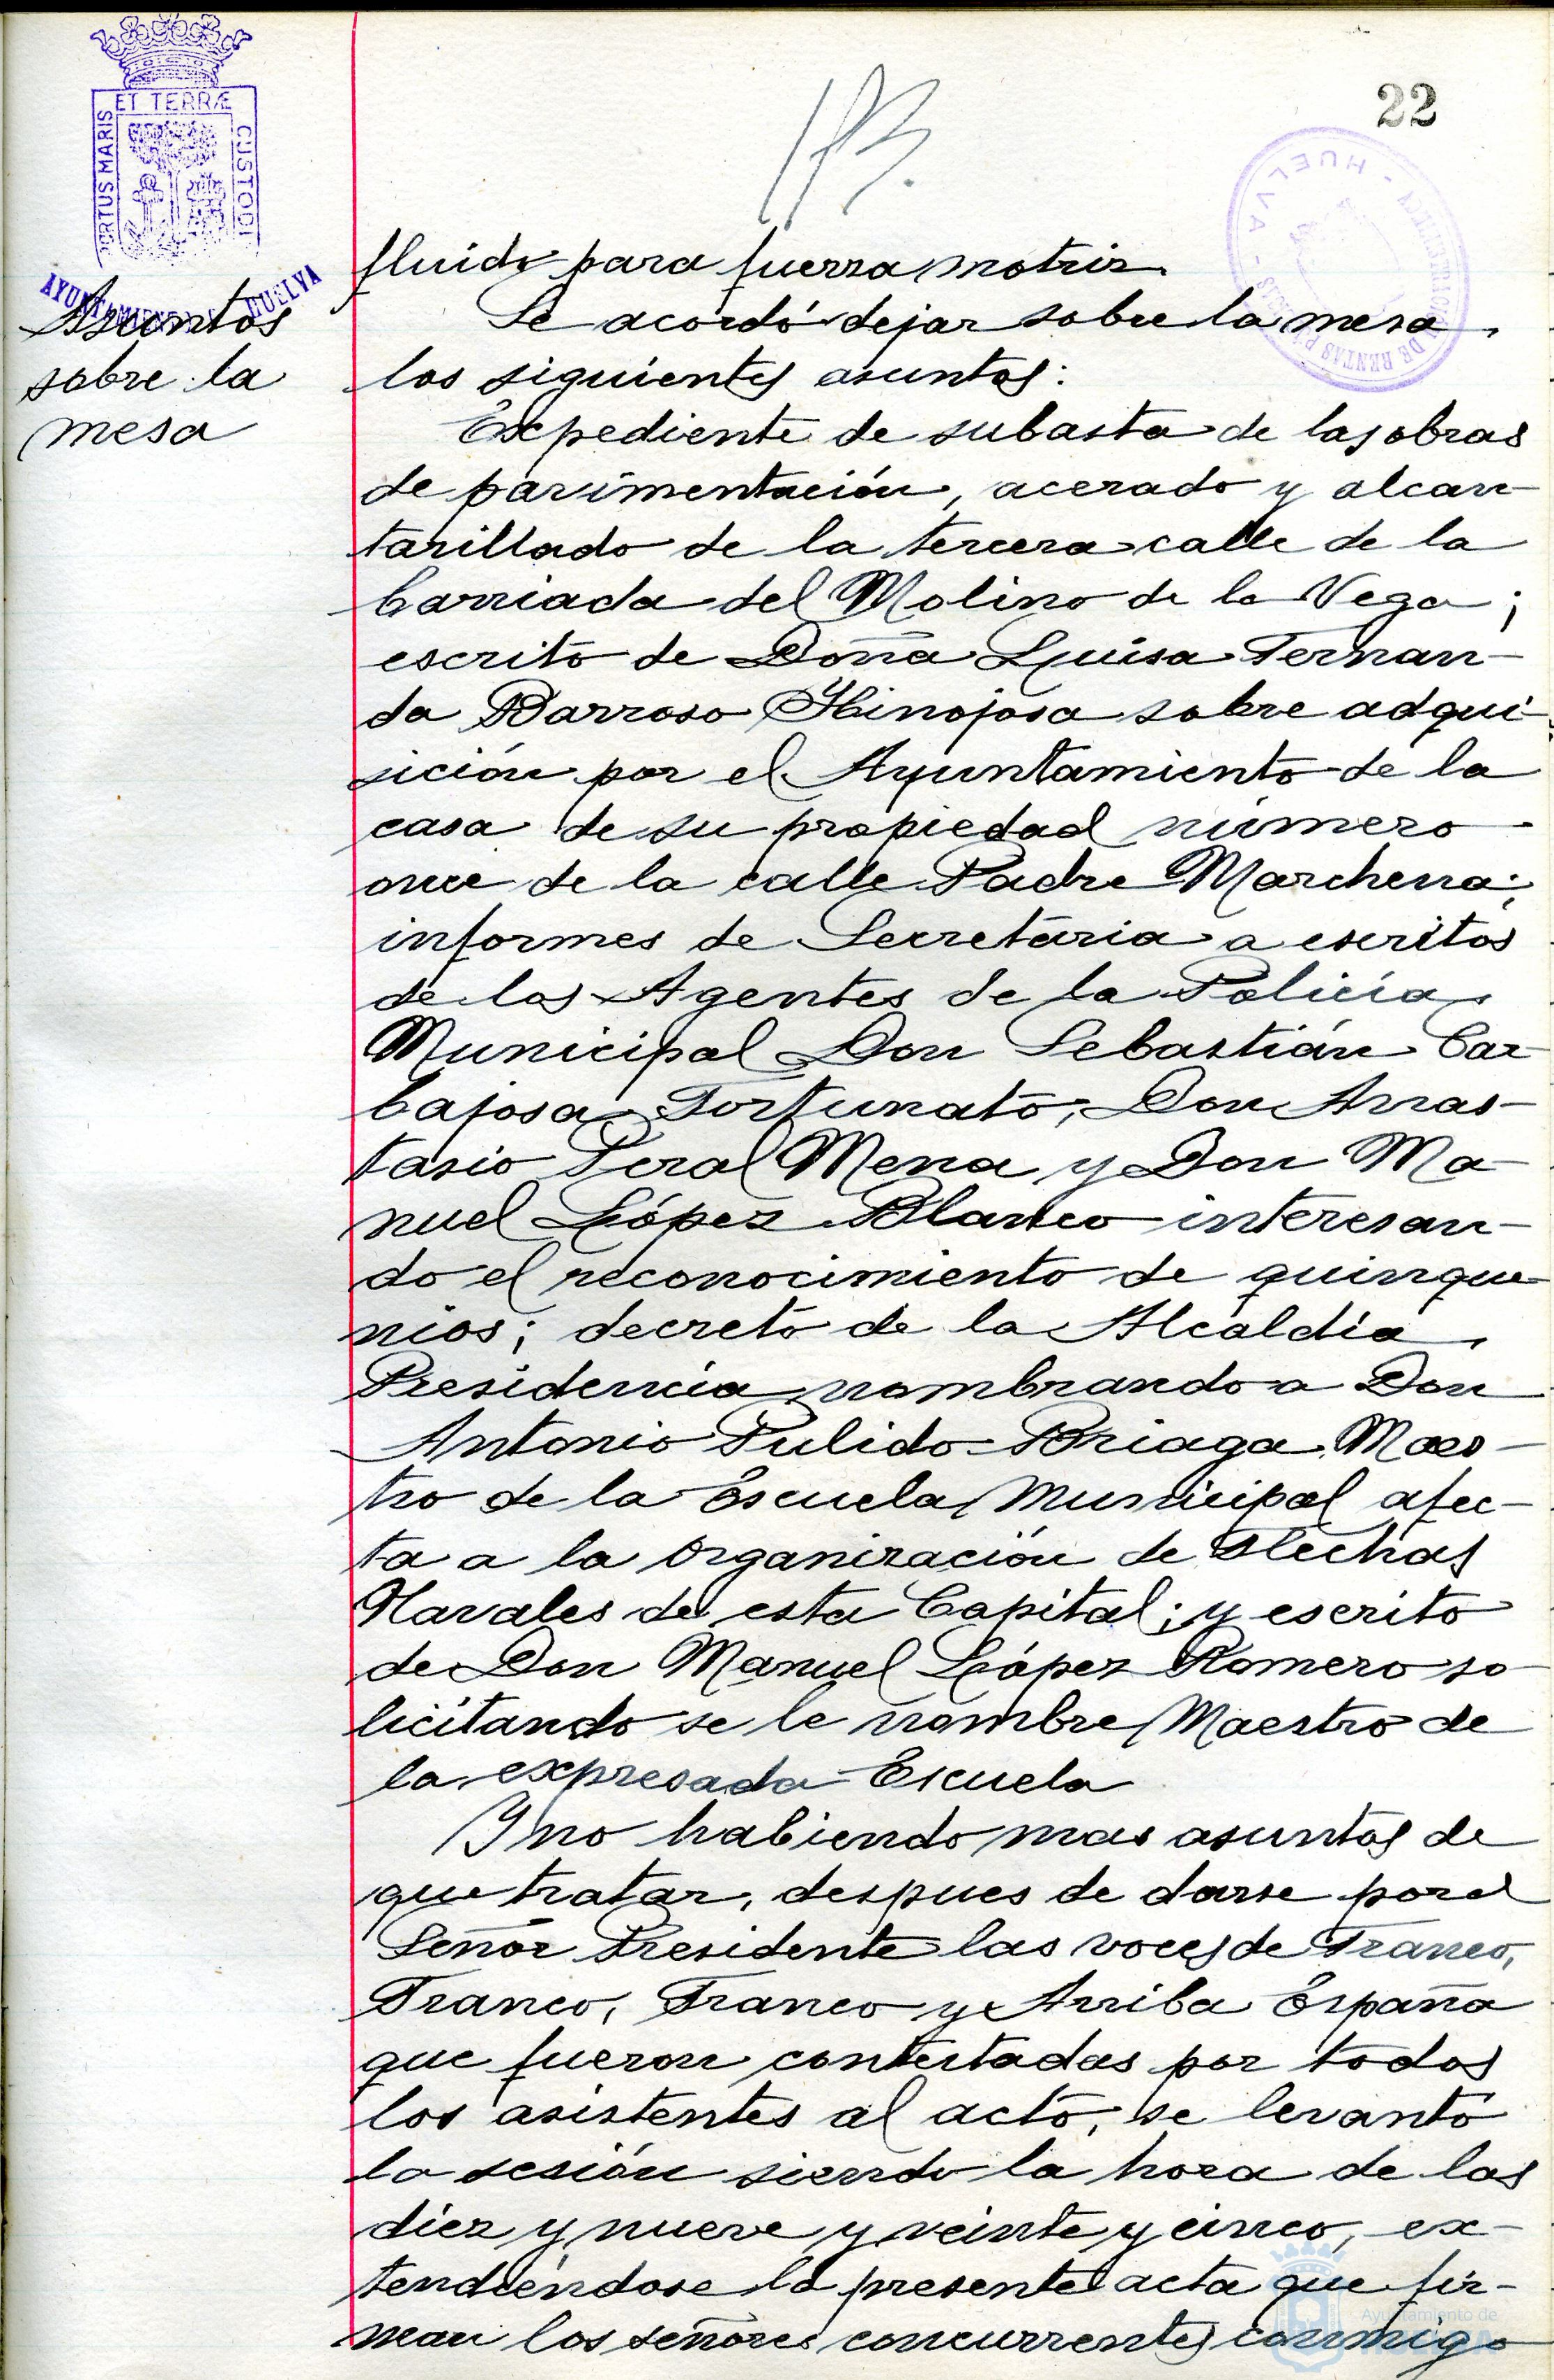 22
ET TERRÆ
PORTUS MARIS
CUSTODI
AYUNTAMIENTO DE HUELVA
HUELVA
DE RENTAS
Asuntos
sobre la
mesa
fluido para fuerza motriz.
Se acordó dejar sobre la mesa
los siguientes asuntos:
Expediente de subasta de las obras
de pavimentación, acerado y alcan-
tarillado de la tercera calle de la
barriada del Molino de la Vega;
escrito de Doña Luisa Fernan-
da Barroso Hinojosa sobre adqui-
sición por el Ayuntamiento de la
casa de su propiedad número
once de la calle Padre Marchena;
informes de Secretaria a escritos
de los Agentes de la Policía
Municipal Don Sebastián Car-
bajosa Fortunato, Don Anas-
tasio Peral Mena y Don Ma-
nuel López Blanco interesan-
do el reconocimiento de quinque-
nios; decreto de la Alcaldía
Presidencia nombrando a Don
Antonio Pulido Briaga Maes-
tro de la Escuela Municipal afec-
ta a la Organización de Flechas
Navales de esta Capital; y escrito
de Don Manuel López Romero so-
licitando se le nombre Maestro de
la expresada Escuela
Y no habiendo mas asuntos de
que tratar, despues de darse por el
Señor Presidente las voces de Franco,
Franco, Franco y Arriba España
que fueron contestadas por todos
los asistentes al acto, se levantó
la sesión siendo la hora de las
diez y nueve y veinte y cinco, ex-
tendiéndose la presente acta que fir-
man los señores concurrentes conmigo
Ayuntamiento de
HUELVA